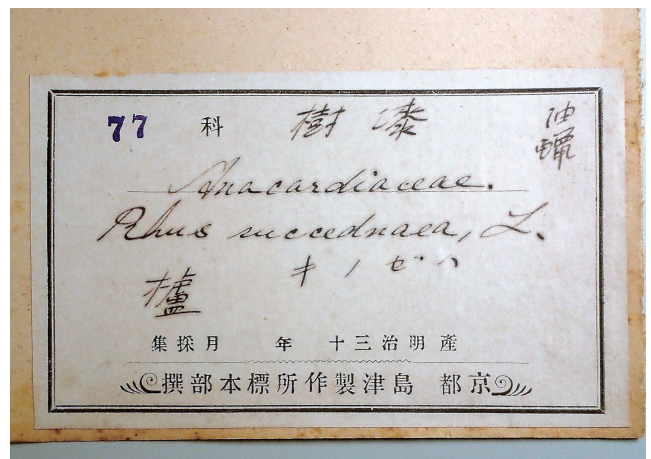 油蠟
漆樹科 77
Anacardiaceae.
Rhus succednaea, L.
ハゼノキ
櫨
産明治三十 年 月採集
京都 島津製作所標本部撰